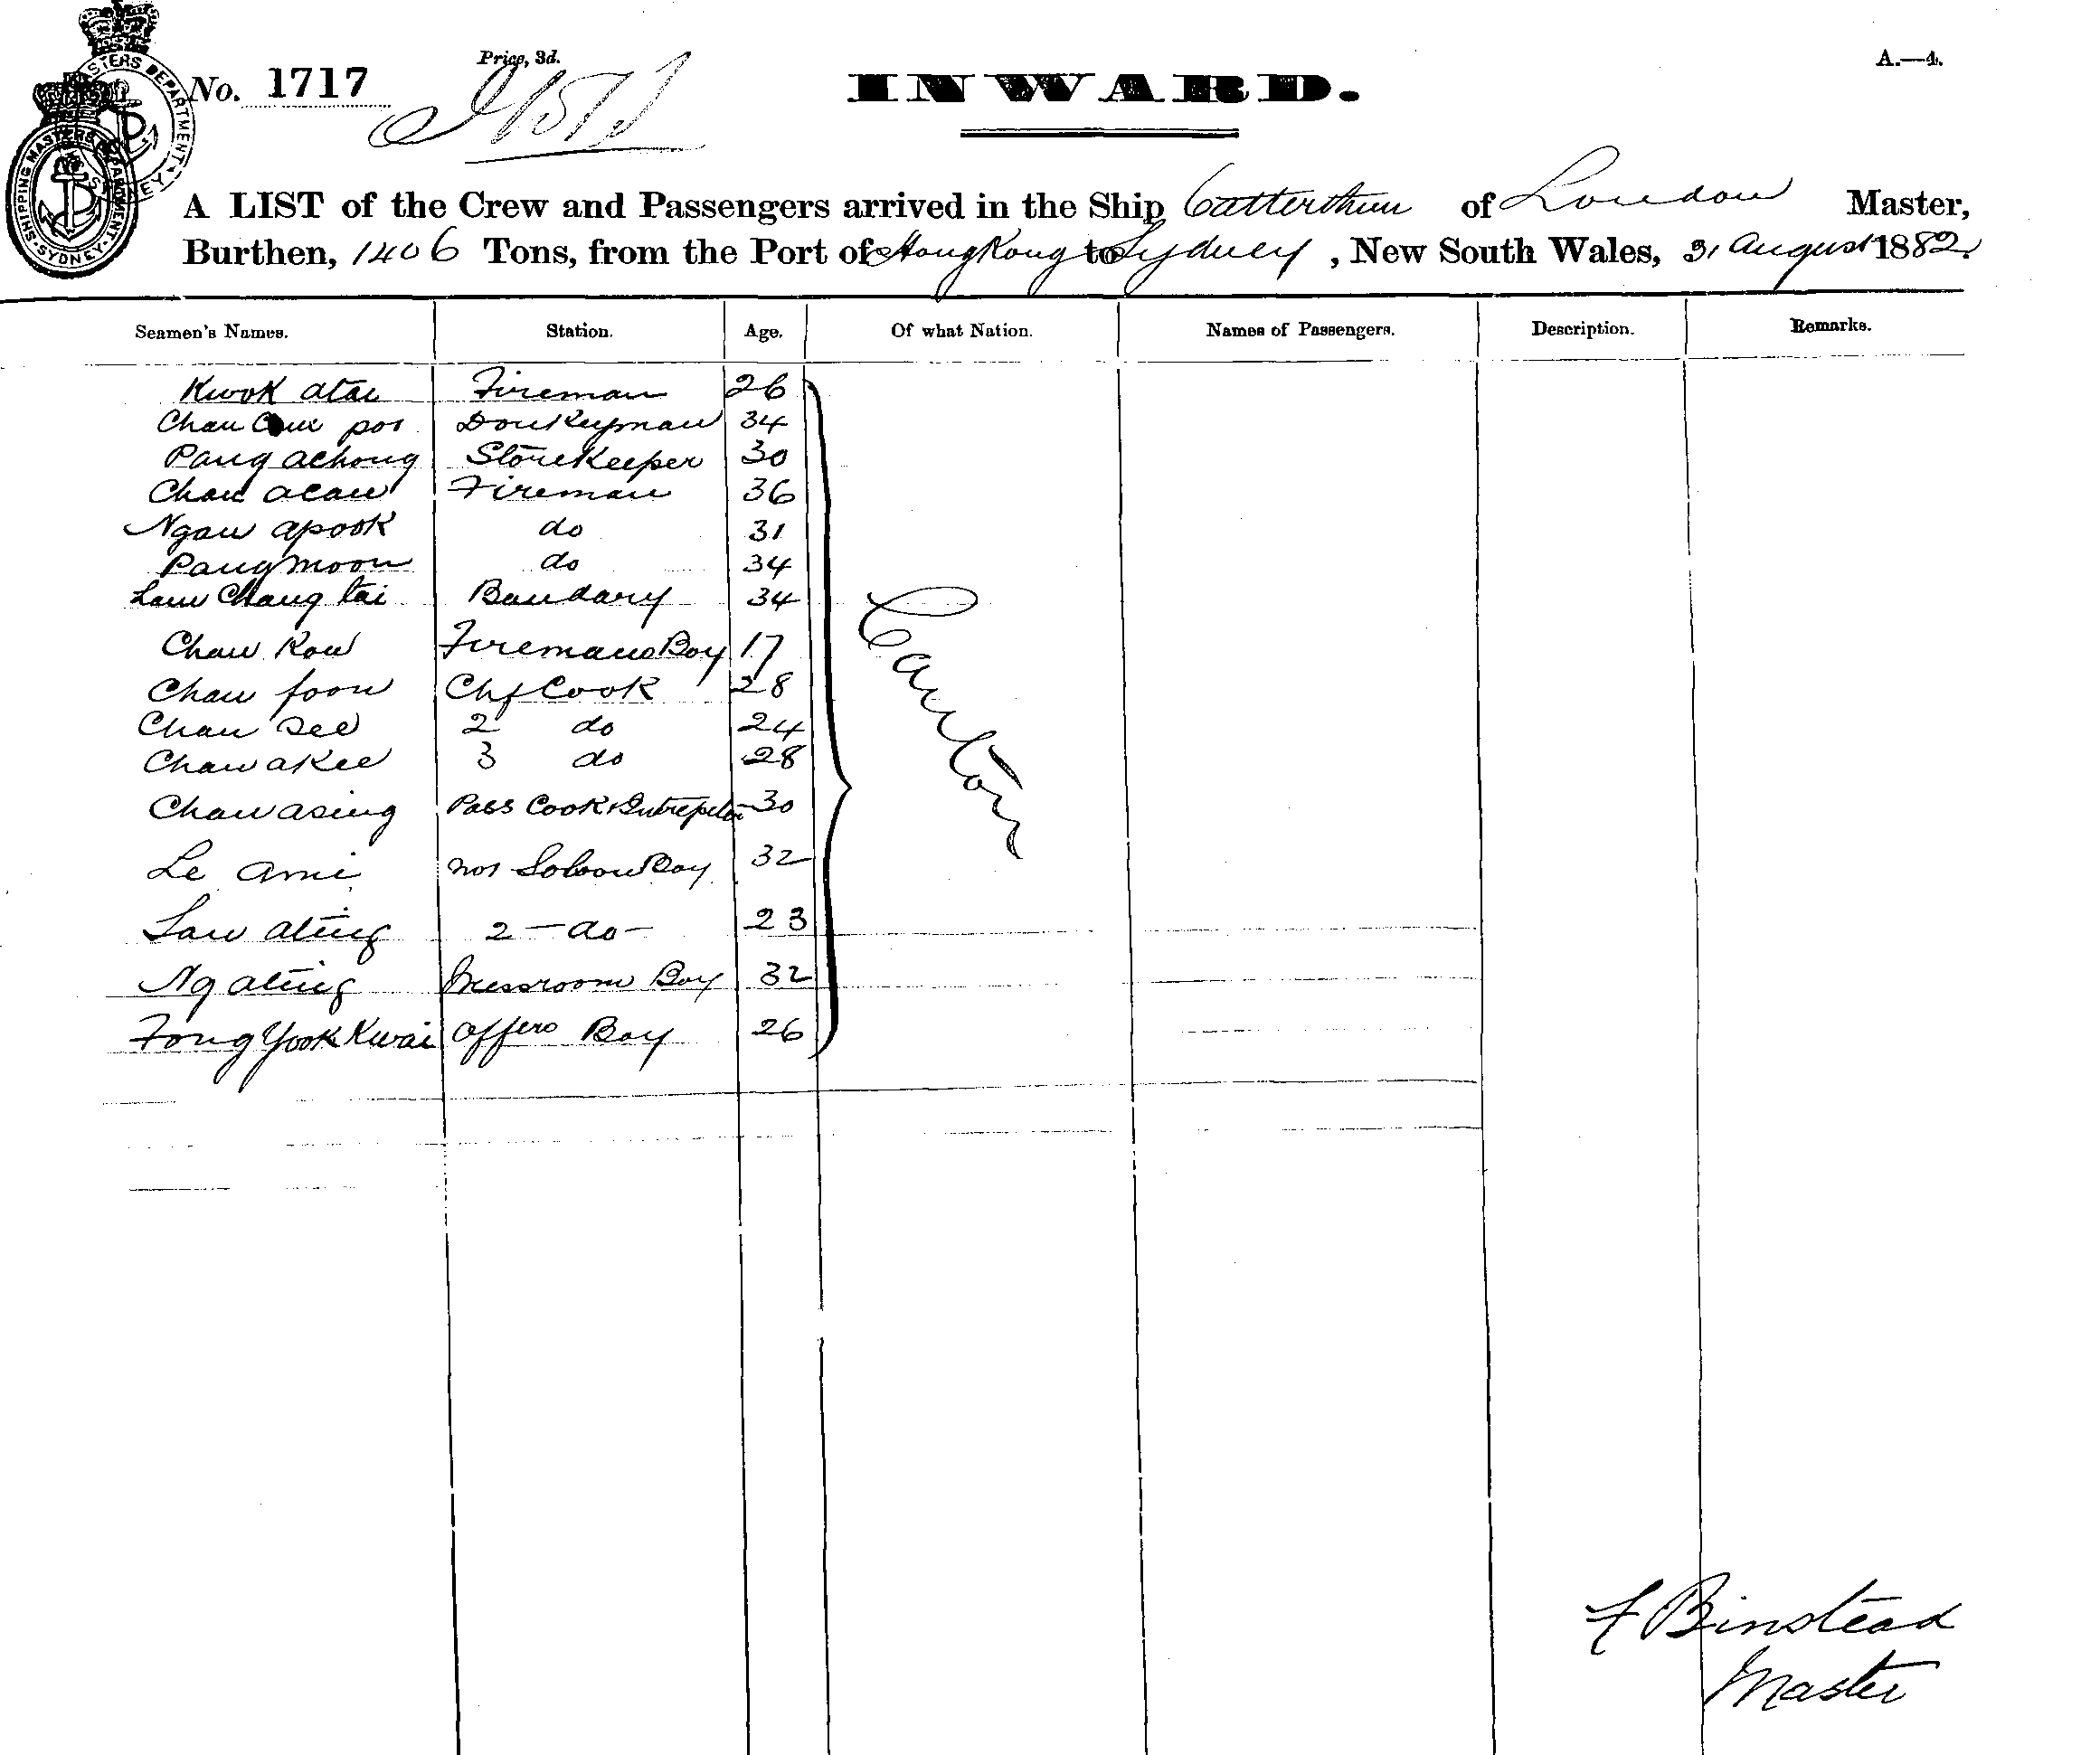 SHIPPING MASTERS DEPARTMENT SYDNEY
No. 1717
Price, 3d.
INWARD.
A.—4.
A LIST of the Crew and Passengers arrived in the Ship Catterthun of London Master,
Burthen, 1406 Tons, from the Port of Hong Kong to Sydney, New South Wales, 31 August 1882.
Seamen's Names. Station. Age. Of what Nation. Names of Passengers. Description. Remarks.
Kwok atai Fireman 26
Chau poi Donkeyman 34
Pang achong StoreKeeper 30
Chau acau Fireman 36
Ngau apook do 31
Pang moon do 34
Lam Chang tai Bandary 34
Chau Kow Firemans Boy 17
Chau foon Chf Cook 28
Chau See 2 do 24
Chau aKee 3 do 28
Chau asing Pass Cook & Intrepeter 30
Le ami no1 Saloon Boy 32
Lau ating 2 - do - 23
Ng ating Messroom Boy 32
Fong Yook Kwai Offers Boy 26
Canton
F Binstead
Master